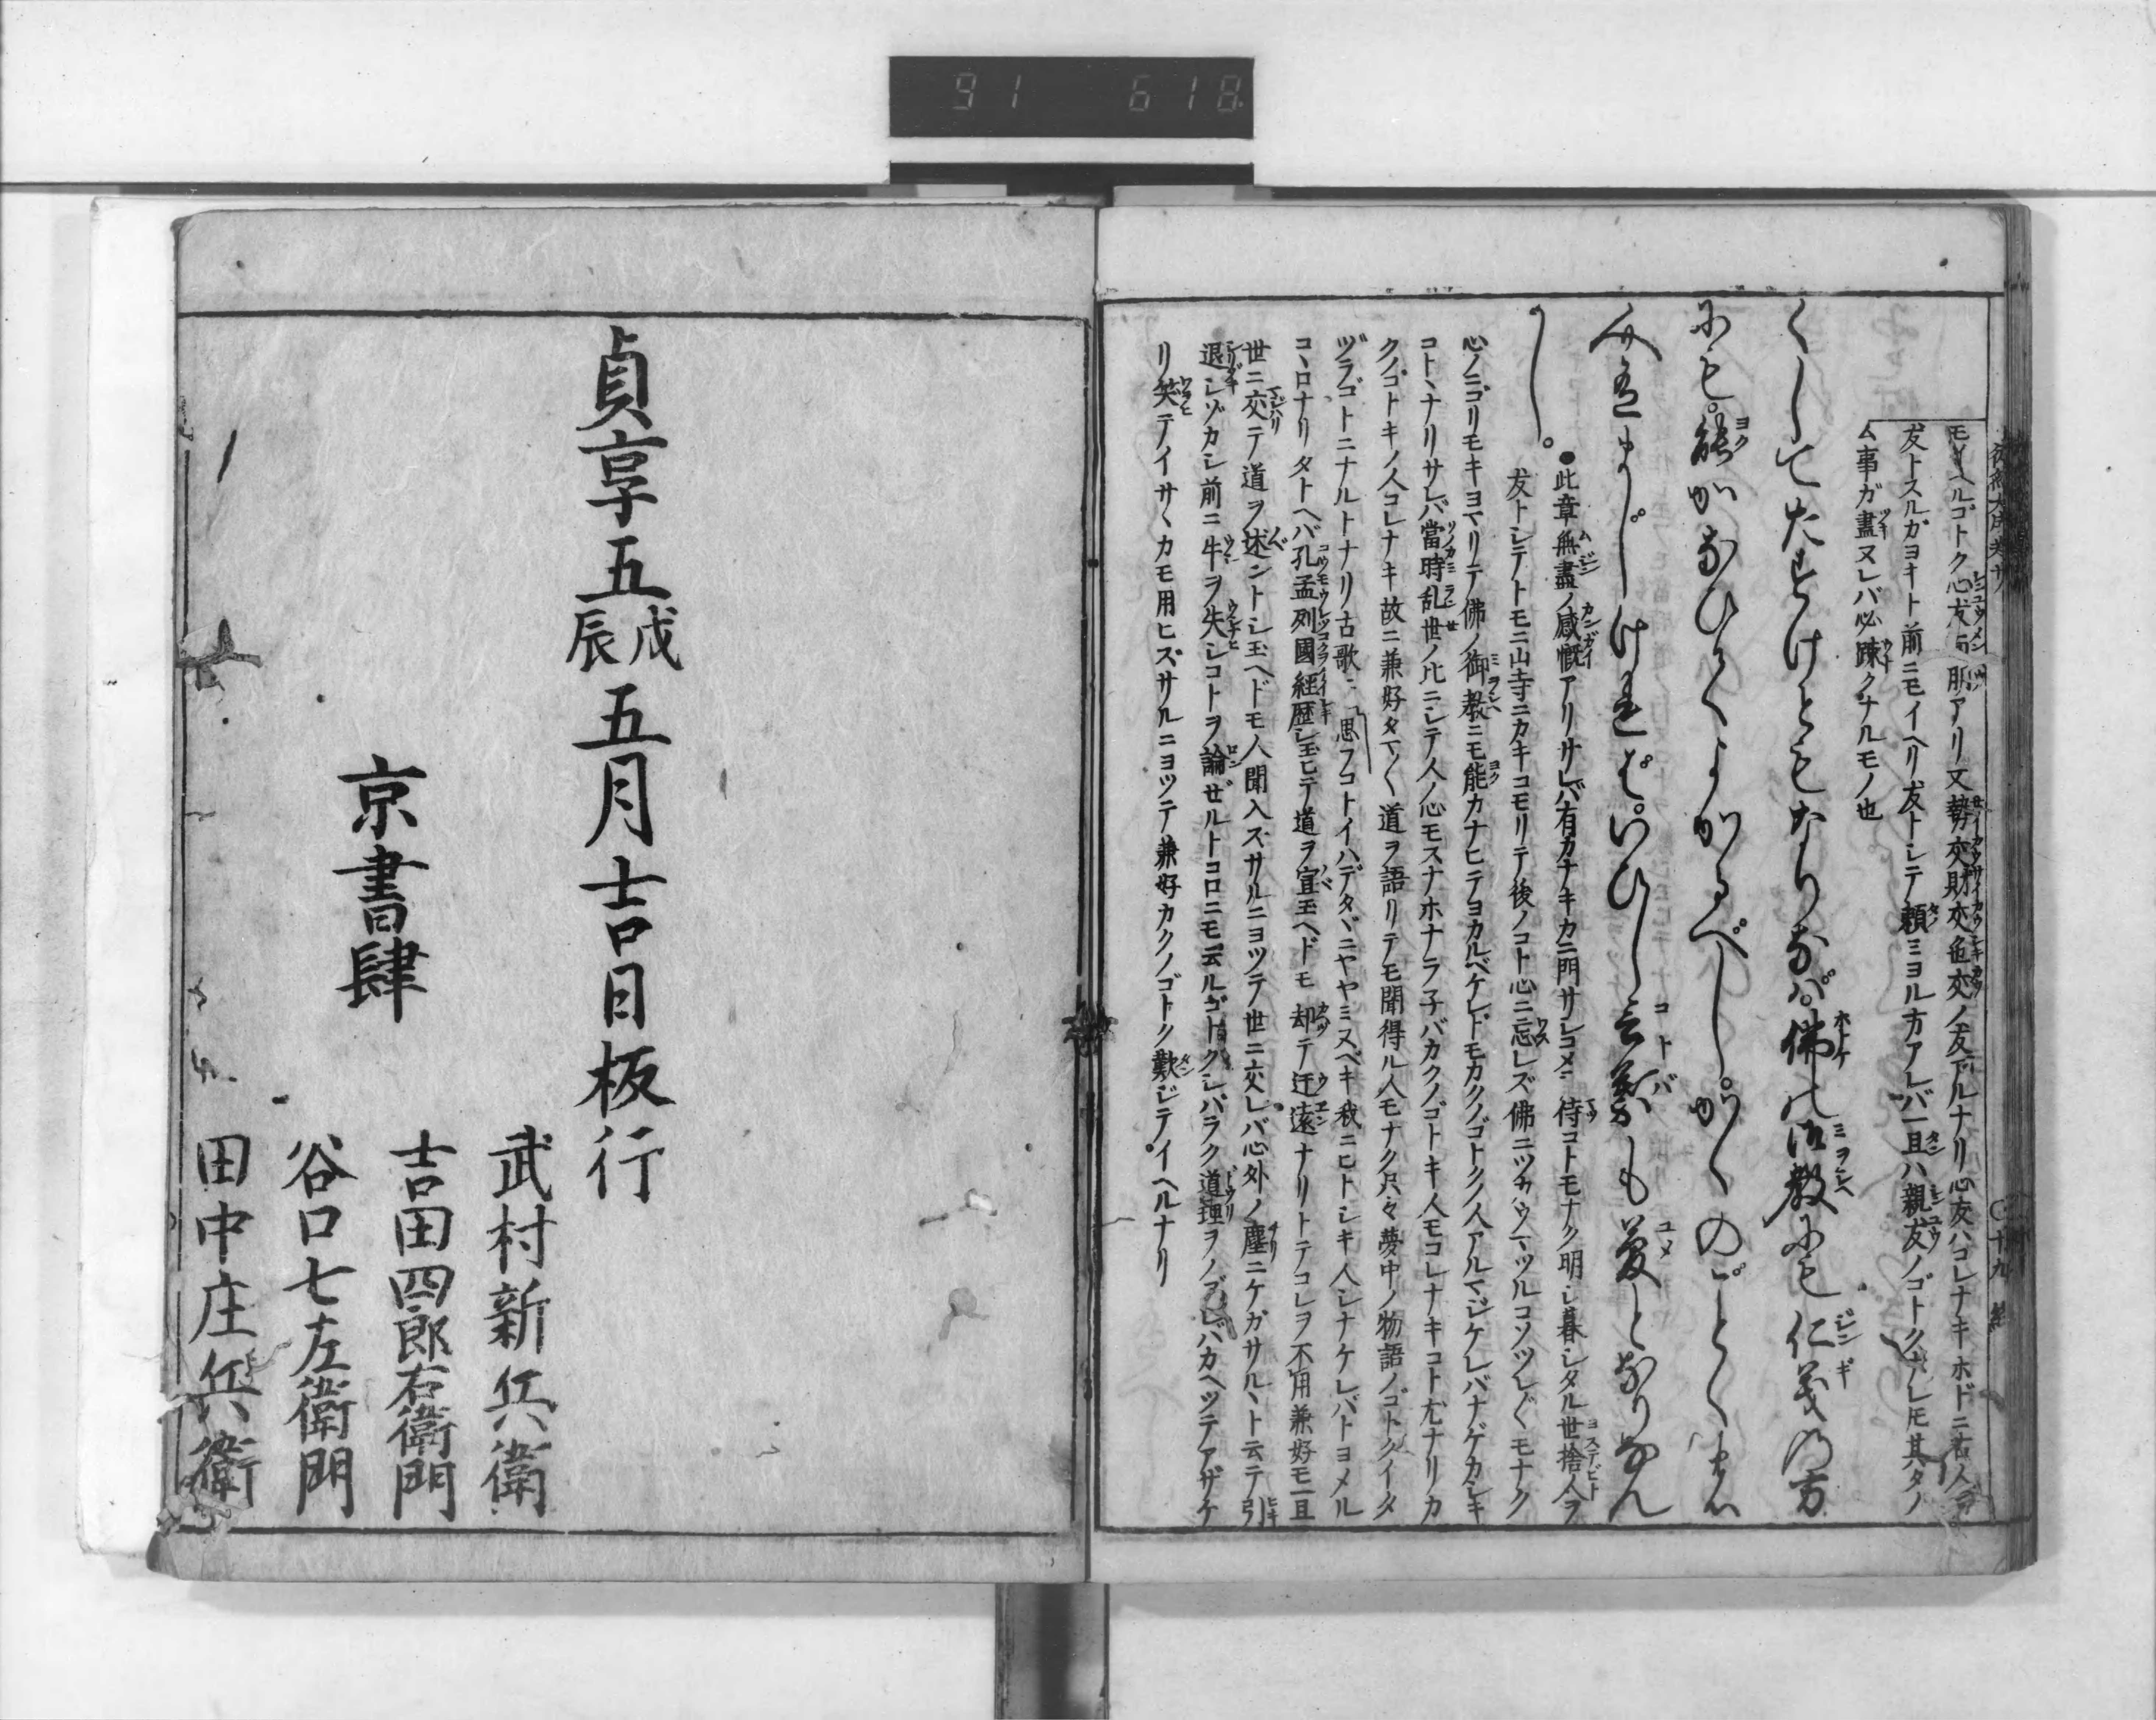 モイヘルゴトク心友アリ又勢交財交色交ノ友アルナリ心友ハコレナキホドニ若人ヲ
友トスルガヨキト前ニモイヘリ友トシテ頼ミヨル方アレバ一旦ハ親友ノゴトクナレ𪜈其タノ
ム事ガ盡ヌレバ必疎クナルモノ也
くしてたすけともなりなば。佛の御教にも仁義の方
にも。能かなひてよかるべし。かくのごとくなる
人有まじければ。いひし言葉も夢となりなん
かし。
●此章無盡ノ感慨アリサレバ有カナキカニ門サシコメ侍コトモナク明シ暮シタル世捨人ヲ
友トシテトモニ山寺ニカキコモリテ後ノコト心ニ忘レズ佛ニツカウマツルコソツレ〲モナク
心ノニゴリモキヨマリテ佛ノ御教ニモ能カナヒテヨカルベケレドモカクノゴトクノ人アルマジケレバナゲカシキ
コトヽナリサレバ當時乱世ノ比ニシテ人ノ心モスナホナラ子バカクノゴトキ人モコレナキコト尤ナリカ
クノゴトキノ人コレナキ故ニ兼好タマ〱道ヲ語リテモ聞得ル人モナク只々夢中ノ物語ノゴトクイタ
ヅラゴトニナルトナリ古歌ニ 思フコトイハデタヾニヤヤミヌベキ我ニヒトシキ人シナケレバトヨメル
コヽロナリタトヘバ孔孟列國經歴シ玉ヒテ道ヲ宣玉ヘドモ却テ迂遠ナリトテコレヲ不用兼好モ一旦
世ニ交テ道ヲ述ントシ玉ヘドモ人聞入ズサルニヨツテ世ニ交レバ心外ノ塵ニケガサルヽト云テ引
退シゾカシ前ニ牛ヲ失シコトヲ論ゼルトコロニモ云ルゴトクシバラク道理ヲノブレバカヘツテアザケ
リ笑テイサヽカモ用ヒズサルニヨツテ兼好カクノゴトク歎ジテイヘルナリ
貞享五戊辰五月吉日板行
京書肆
武村新兵衛
吉田四郎右衛門
谷口七左衛門
田中庄兵衛
91 618